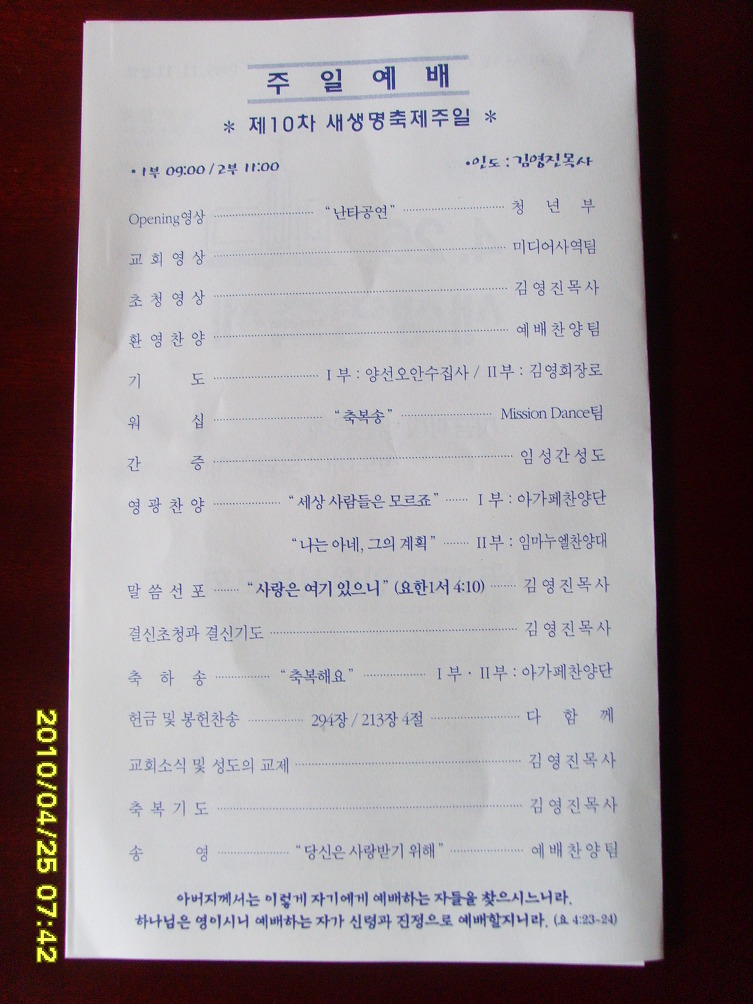 주 일 예 배
* 제10차 새생명축제주일 *
• 1부 09:00 / 2부 11:00 •인도 : 김영진목사
Opening영상 “난타공연” 청 년 부
교회영상 미디어사역팀
초청영상 김영진목사
환영찬양 예배찬양팀
기 도 I 부 : 양선오안수집사 / II부 : 김영회장로
워 십 “축복송” Mission Dance팀
간 증 임성간성도
영광찬양 “세상 사람들은 모르죠” I 부 : 아가페찬양단
“나는 아네, 그의 계획” II부 : 임마누엘찬양대
말씀선포 “사랑은 여기 있으니” (요한1서 4:10) 김영진목사
결신초청과 결신기도 김영진목사
축 하 송 “축복해요” I 부 · II부 : 아가페찬양단
헌금 및 봉헌찬송 294장 / 213장 4절 다 함 께
교회소식 및 성도의 교제 김영진목사
축복기도 김영진목사
송 영 “당신은 사랑받기 위해” 예배찬양팀
아버지께서는 이렇게 자기에게 예배하는 자들을 찾으시느니라.
하나님은 영이시니 예배하는 자가 신령과 진정으로 예배할지니라. (요 4:23~24)
2010/04/25 07:42